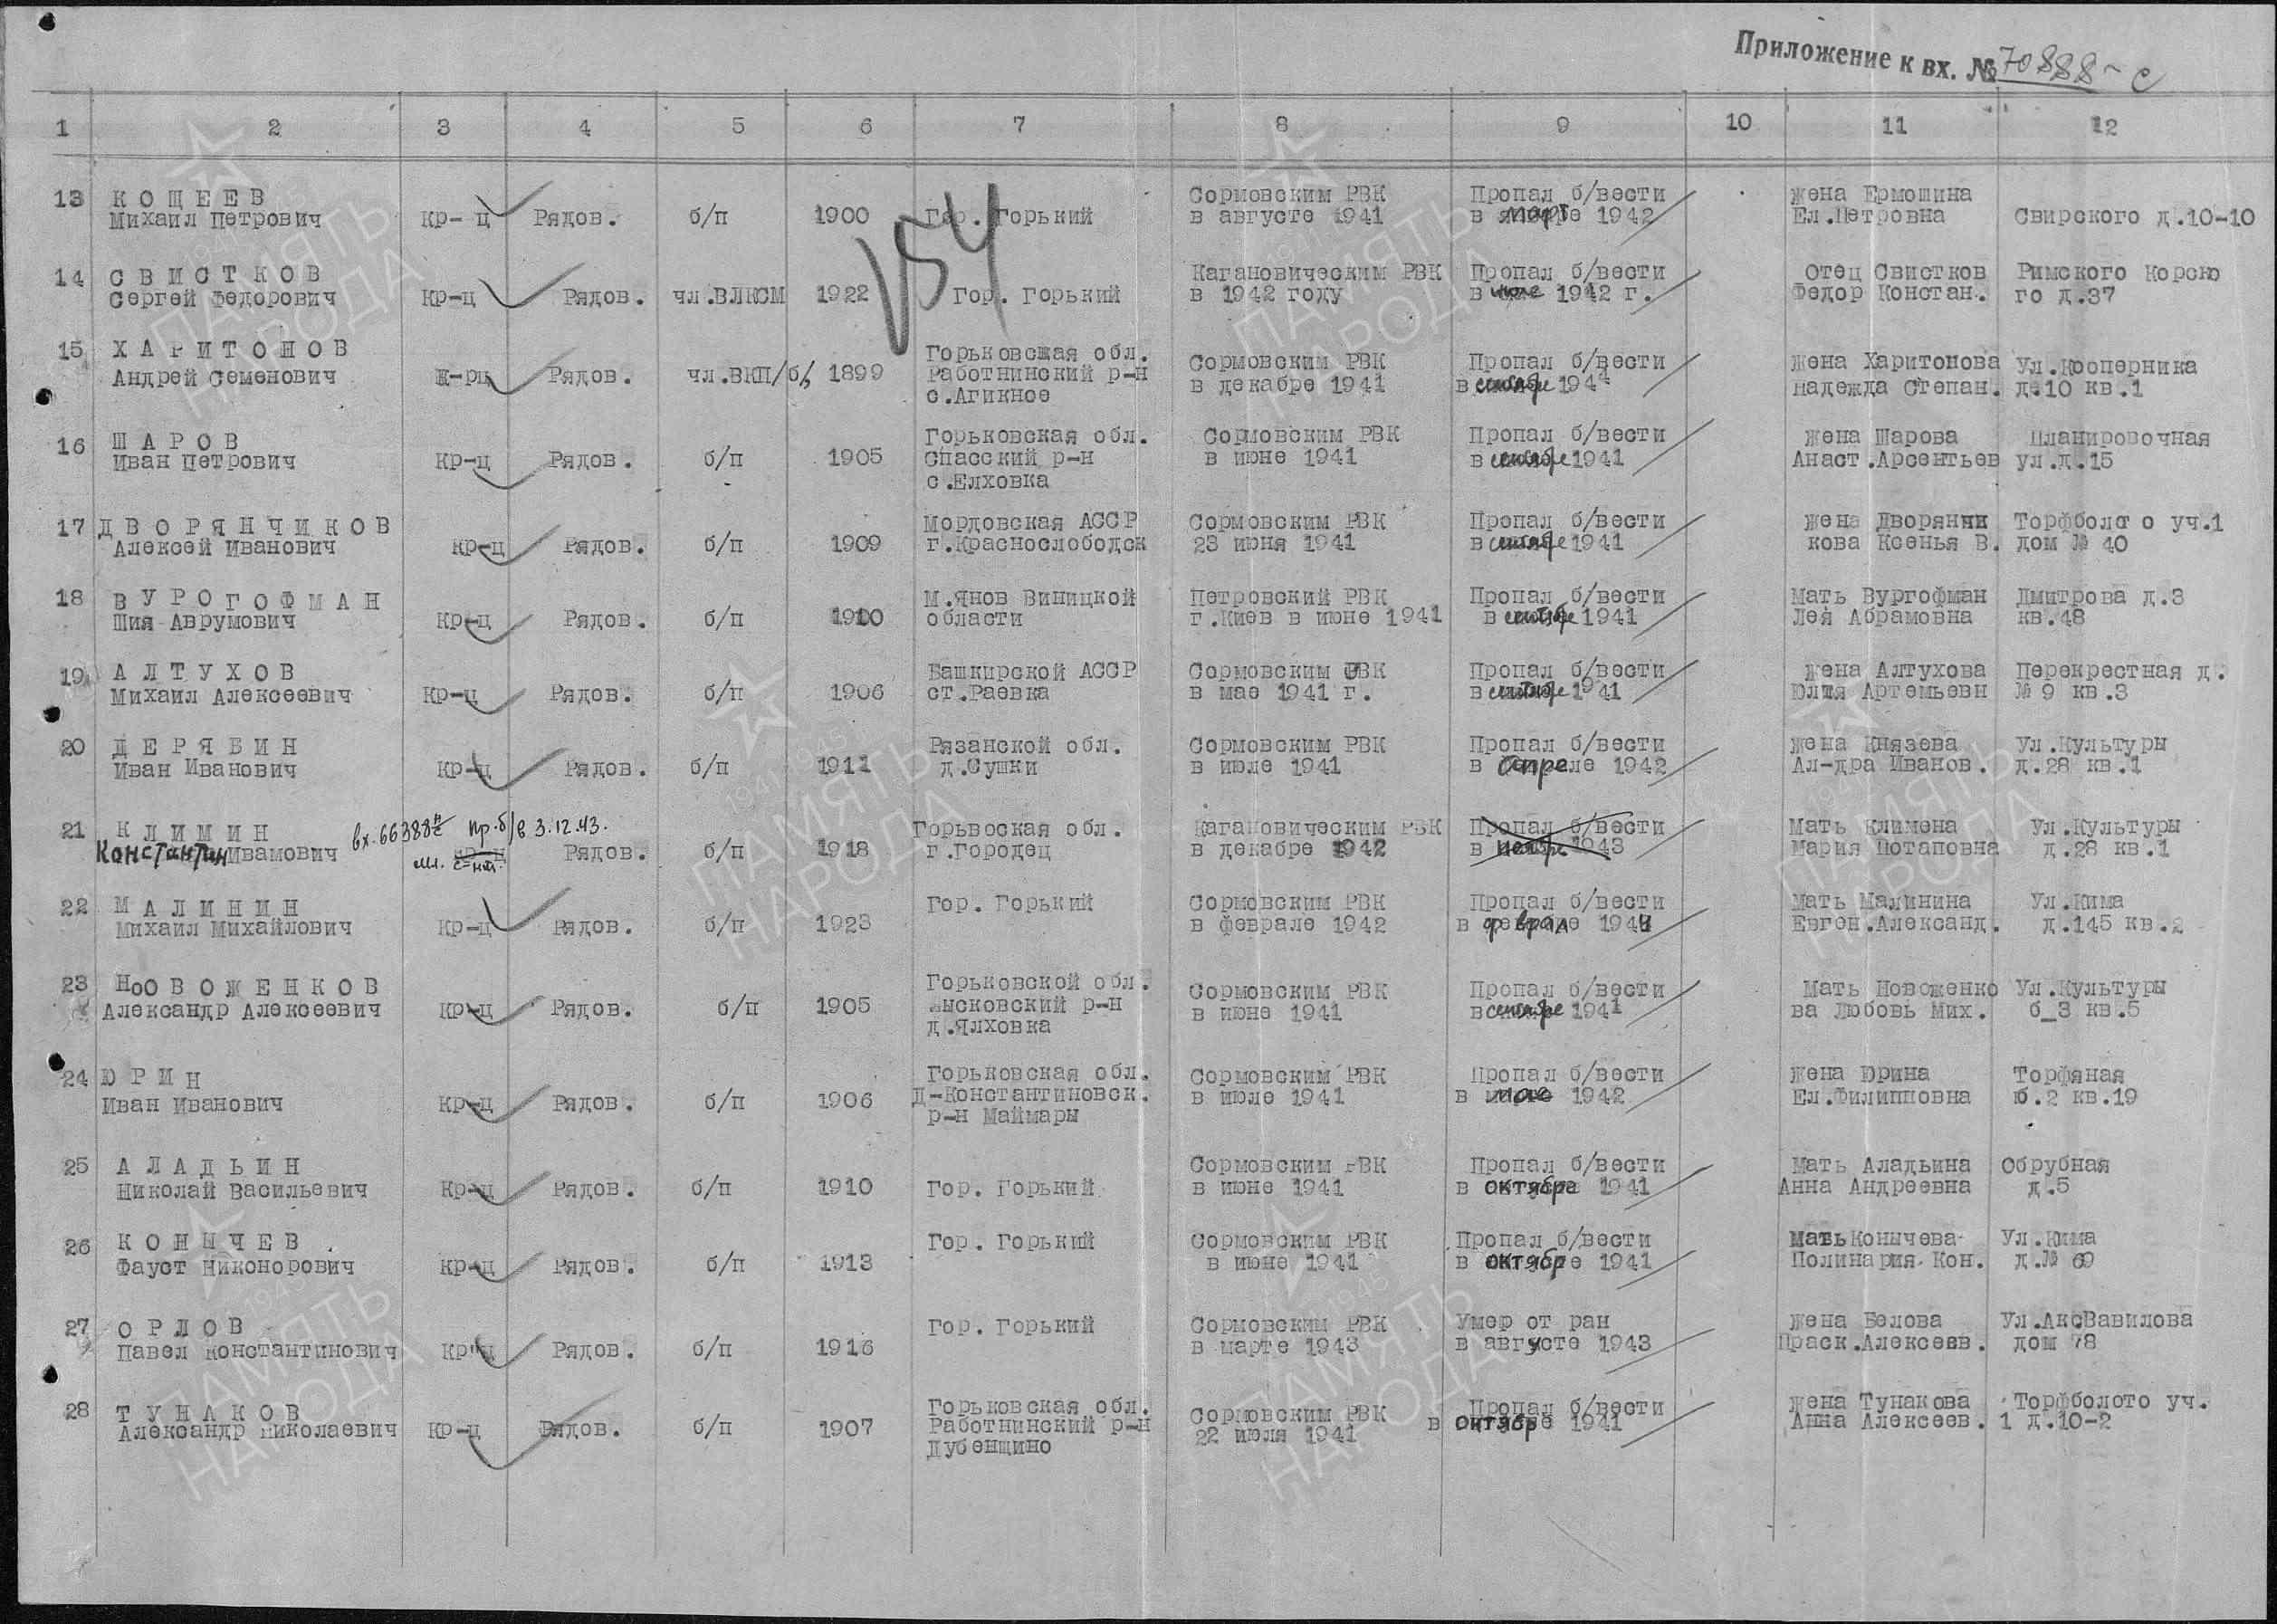 Приложение к вх. № 70888-с
1 2 3 4 5 6 7 8 9 10 11 12
13 КОЩЕЕВ Сормовским РВК Пропал б/вести жена Ермошина
Михаил Петрович кр-ц Рядов. б/п 1900 Гор. Горький в августе 1941 в марте 1942 Ел.Петровна Свирского д.10-10
154
14 СВИСТКОВ Кагановическим РВК Пропал б/вести отец Свистков Римского Корсю
Сергей Федорович Кр-ц Рядов. чл.ВЛКСМ 1922 Гор. Горький в 1942 году в июле 1942 г. Федор Констан. го д.37
15 ХАРИТОНОВ Горьковская обл. Сормовским РВК Пропал б/вести жена Харитонова Ул.Кооперника
Андрей Семенович Рядов. чл.ВКП/б/ 1899 Работнинский р-н в декабре 1941 в 194 Надежда Степан. д.10 кв.1
с.Агикное
16 ШАРОВ Горьковская обл. Сормовским РВК Пропал б/вести жена Шарова Планировочная
Иван Петрович кр-ц Рядов. б/п 1905 Спасский р-н в июне 1941 в 1941 Анаст.Арсентьев ул.д.15
с.Елховка
17 ДВОРЯНЧИКОВ Мордовская АССР Сормовским РВК Пропал б/вести жена Дворянчи Торфболото уч.1
Алексей Иванович кр-ц Рядов. б/п 1909 г.Краснослободск 23 июня 1941 в 1941 кова Ксенья В. дом № 40
18 ВУРОГОФМАН М.Янов Виницкой Петровский РВК Пропал б/вести Мать Вургофман Дмитрова д.3
Шия Аврумович кр-ц Рядов. б/п 1910 области г.Киев в июне 1941 в 1941 Лея Абрамовна кв.48
19 АЛТУХОВ Башкирской АССР Сормовским РВК Пропал б/вести жена Алтухова Перекрестная д.
Михаил Алексеевич кр-ц Рядов. б/п 1906 ст.Раевка в мае 1941 г. в 1941 Юлия Артемьевн № 9 кв.3
20 ДЕРЯБИН Рязанской обл. Сормовским РВК Пропал б/вести жена Князева Ул.Культуры
Иван Иванович кр-ц Рядов. б/п 1911 д.Сушки в июле 1941 в апреле 1942 Ал-дра Иванов. д.28 кв.1
вх.66388 пр.б/в 3.12.43.
21 КЛИМИН Горьвоская обл. Кагановическим РВК Пропал б/вести Мать Климена Ул.Культуры
Константин Ивамович мл. с-нт. Рядов. б/п 1918 г.Городец в декабре 1942 в ноябре 1943 Мария Потаповна д.28 кв.1
22 МАЛИНИН Гор. Горький Сормовским РВК Пропал б/вести Мать Малинина Ул.Кима
Михаил Михайлович Кр-ц Рядов. б/п 1923 в феврале 1942 в феврале 1944 Евген.Александ. д.145 кв.2
23 НоОВОЖЕНКОВ Горьковской обл. Сормовским РВК Пропал б/вести Мать Новоженко Ул.Культуры
Александр Алексеевич кр-ц Рядов. б/п 1905 Лысковский р-н в июне 1941 в 1941 ва Любовь Мих. б_3 кв.5
д.Ялховка
24 ЮРИН Горьковская обл. Сормовским РВК Пропал б/вести жена Юрина Торфяная
Иван Иванович кр-ц Рядов. б/п 1906 Д-Константиновск. в июле 1941 в мае 1942 Ел.Филипповна б.2 кв.19
р-н Маймары
25 АЛАДЬИН Сормовским РВК Пропал б/вести Мать Аладьина Обрубная
Николай Васильевич Кр-ц Рядов. б/п 1910 Гор. Горький в июне 1941 в октябре 1941 Анна Андреевна д.5
26 КОНЫЧЕВ Гор. Горький Сормовским РВК Пропал б/вести Мать Конычева Ул.Кима
Фауст Никонорович кр-ц Рядов. б/п 1913 в июне 1941 в октябре 1941 Полинария Кон. д.№ 69
27 ОРЛОВ Гор. Горький Сормовским РВК Умер от ран жена Белова Ул.АксВавилова
Павел Константинович кр-ц Рядов. б/п 1916 в марте 1943 в августе 1943 Праск.Алексеев. дом 78
28 ТУНАКОВ Горьковская обл. Сормовским РВК Пропал б/вести жена Тунакова Торфболото уч.
Александр Николаевич кр-ц Рядов. б/п 1907 Работнинский р-н 22 июля 1941 в октябре 1941 Анна Алексеев. 1 д.10-2
Дубенщино
ПАМЯТЬ НАРОДА